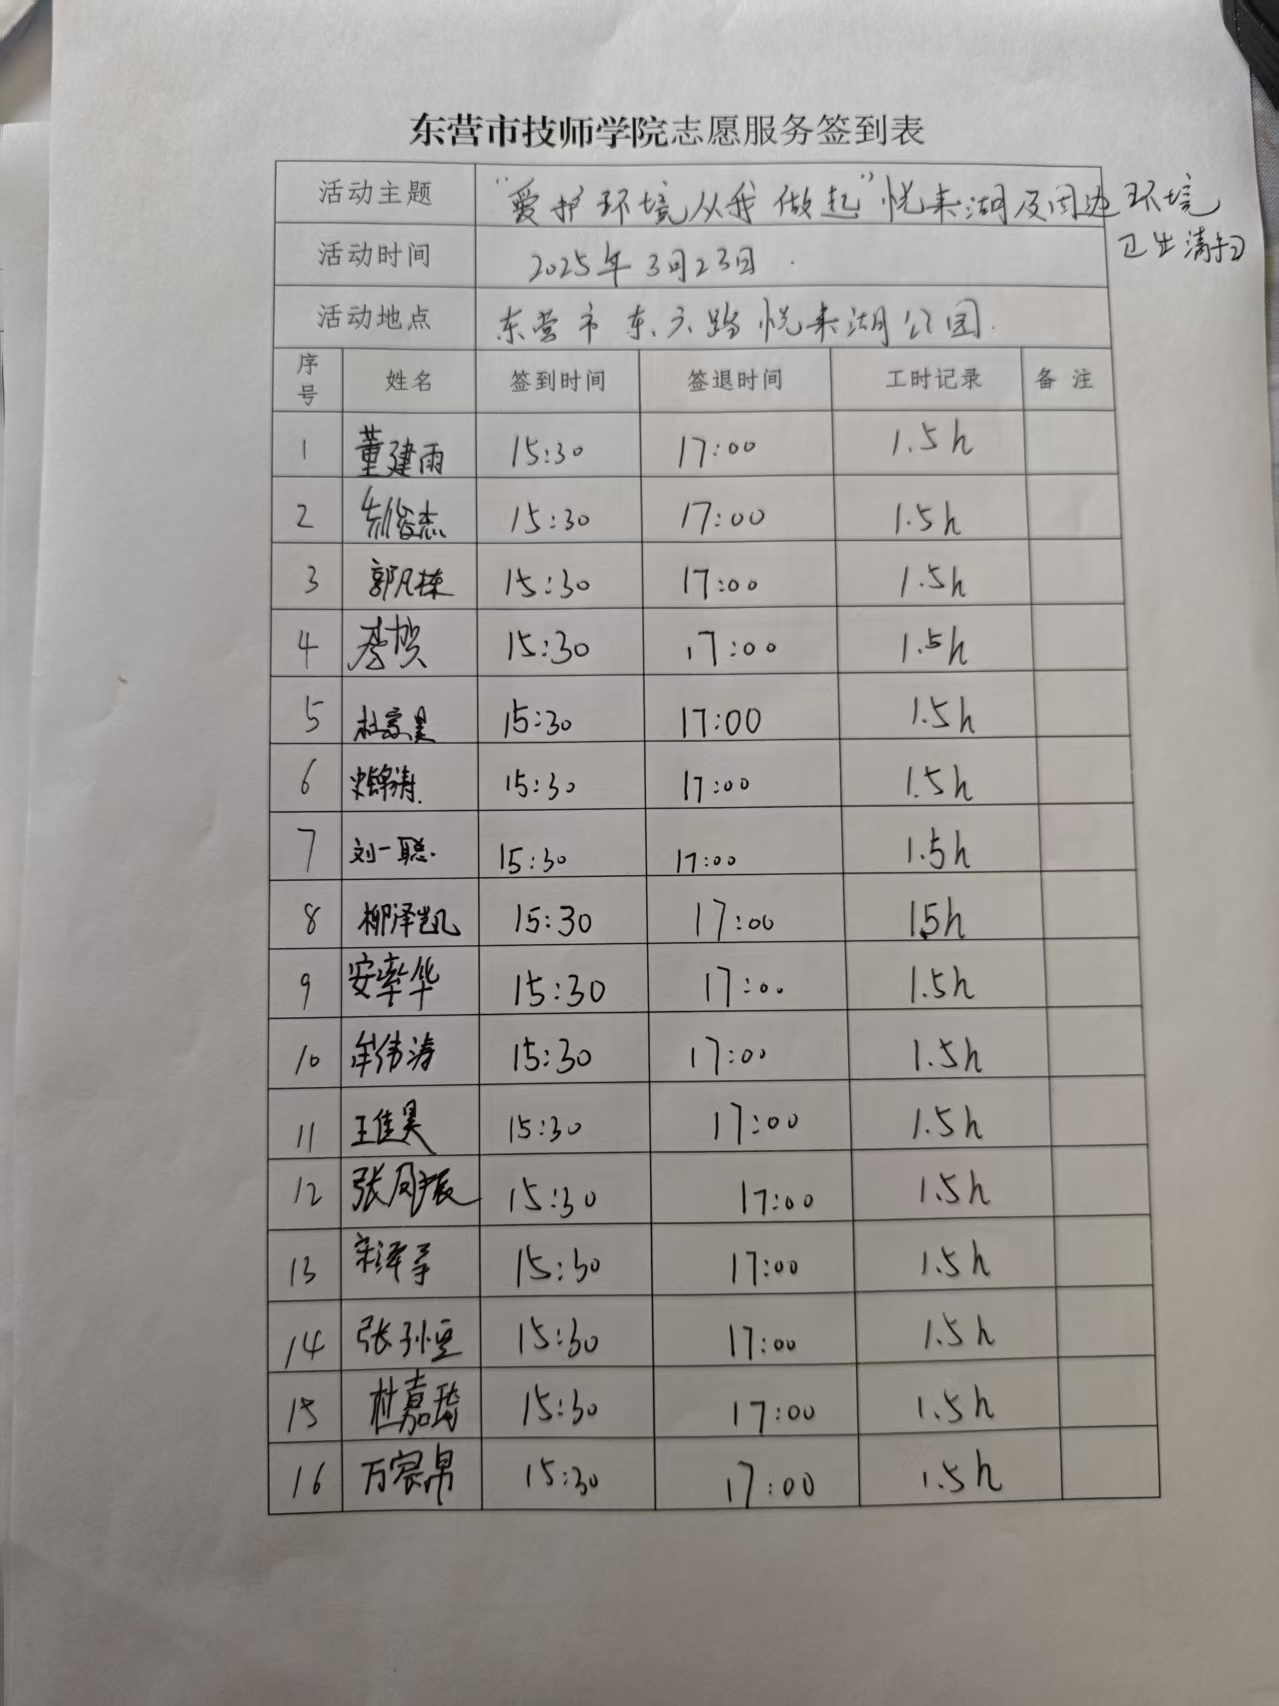 东营市技师学院志愿服务签到表
活动主题 “爱护环境从我做起”悦来湖及周边环境
卫生清扫
活动时间 2025年3月23日
活动地点 东营市东六路悦来湖公园
序号 姓名 签到时间 签退时间 工时记录 备注
1 董建雨 15:30 17:00 1.5h
2 俊杰 15:30 17:00 1.5h
3 郭凡栋 15:30 17:00 1.5h
4 李贺 15:30 17:00 1.5h
5 杜 昊 15:30 17:00 1.5h
6 锦涛 15:30 17:00 1.5h
7 刘一聪 15:30 17:00 1.5h
8 柳泽凯 15:30 17:00 1.5h
9 安率华 15:30 17:00 1.5h
10 牟伟涛 15:30 17:00 1.5h
11 王佳昊 15:30 17:00 1.5h
12 张凤振 15:30 17:00 1.5h
13 宋泽 15:30 17:00 1.5h
14 张孙恒 15:30 17:00 1.5h
15 杜嘉琦 15:30 17:00 1.5h
16 万宸帛 15:30 17:00 1.5h